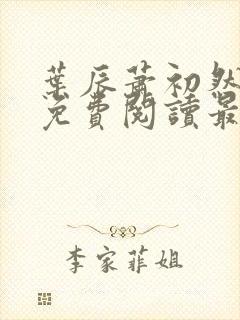 葉辰蕭初然
免費閱讀最
李家菲姐